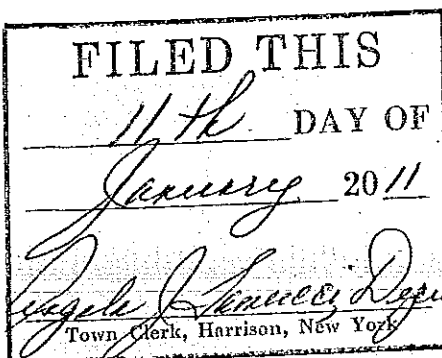 FILED THIS
11th DAY OF
January 2011
Angela J.
Town Clerk, Harrison, New York